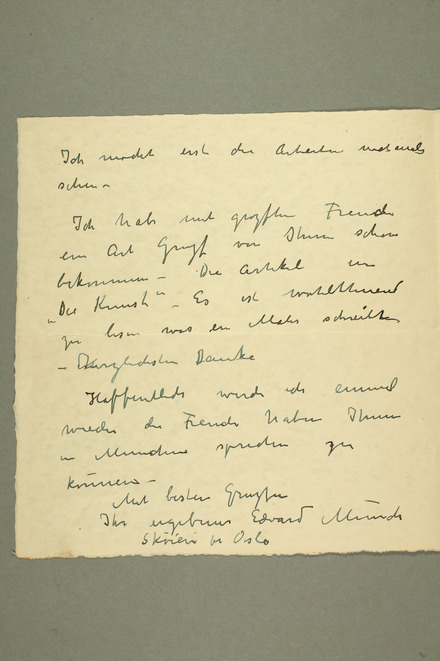 Ich möcht erst die Arbeiten mehrmals
sehen –
Ich habe mit grozfter Freude
ein Art Grugf von Ihnen schon
bekommen – Die Artikel in
"Die Kunst" – Es ist wohlthuend
zu lesen was ein Maler schreibt
– Herzlichsten Danke
Haffentlich werde ich einmal
wieder die Freude haben Ihnen
in München sprechen zu
können –
Mit besten Grugfen
Ihr ergebener Edvard Munch
Sköien pr Oslo